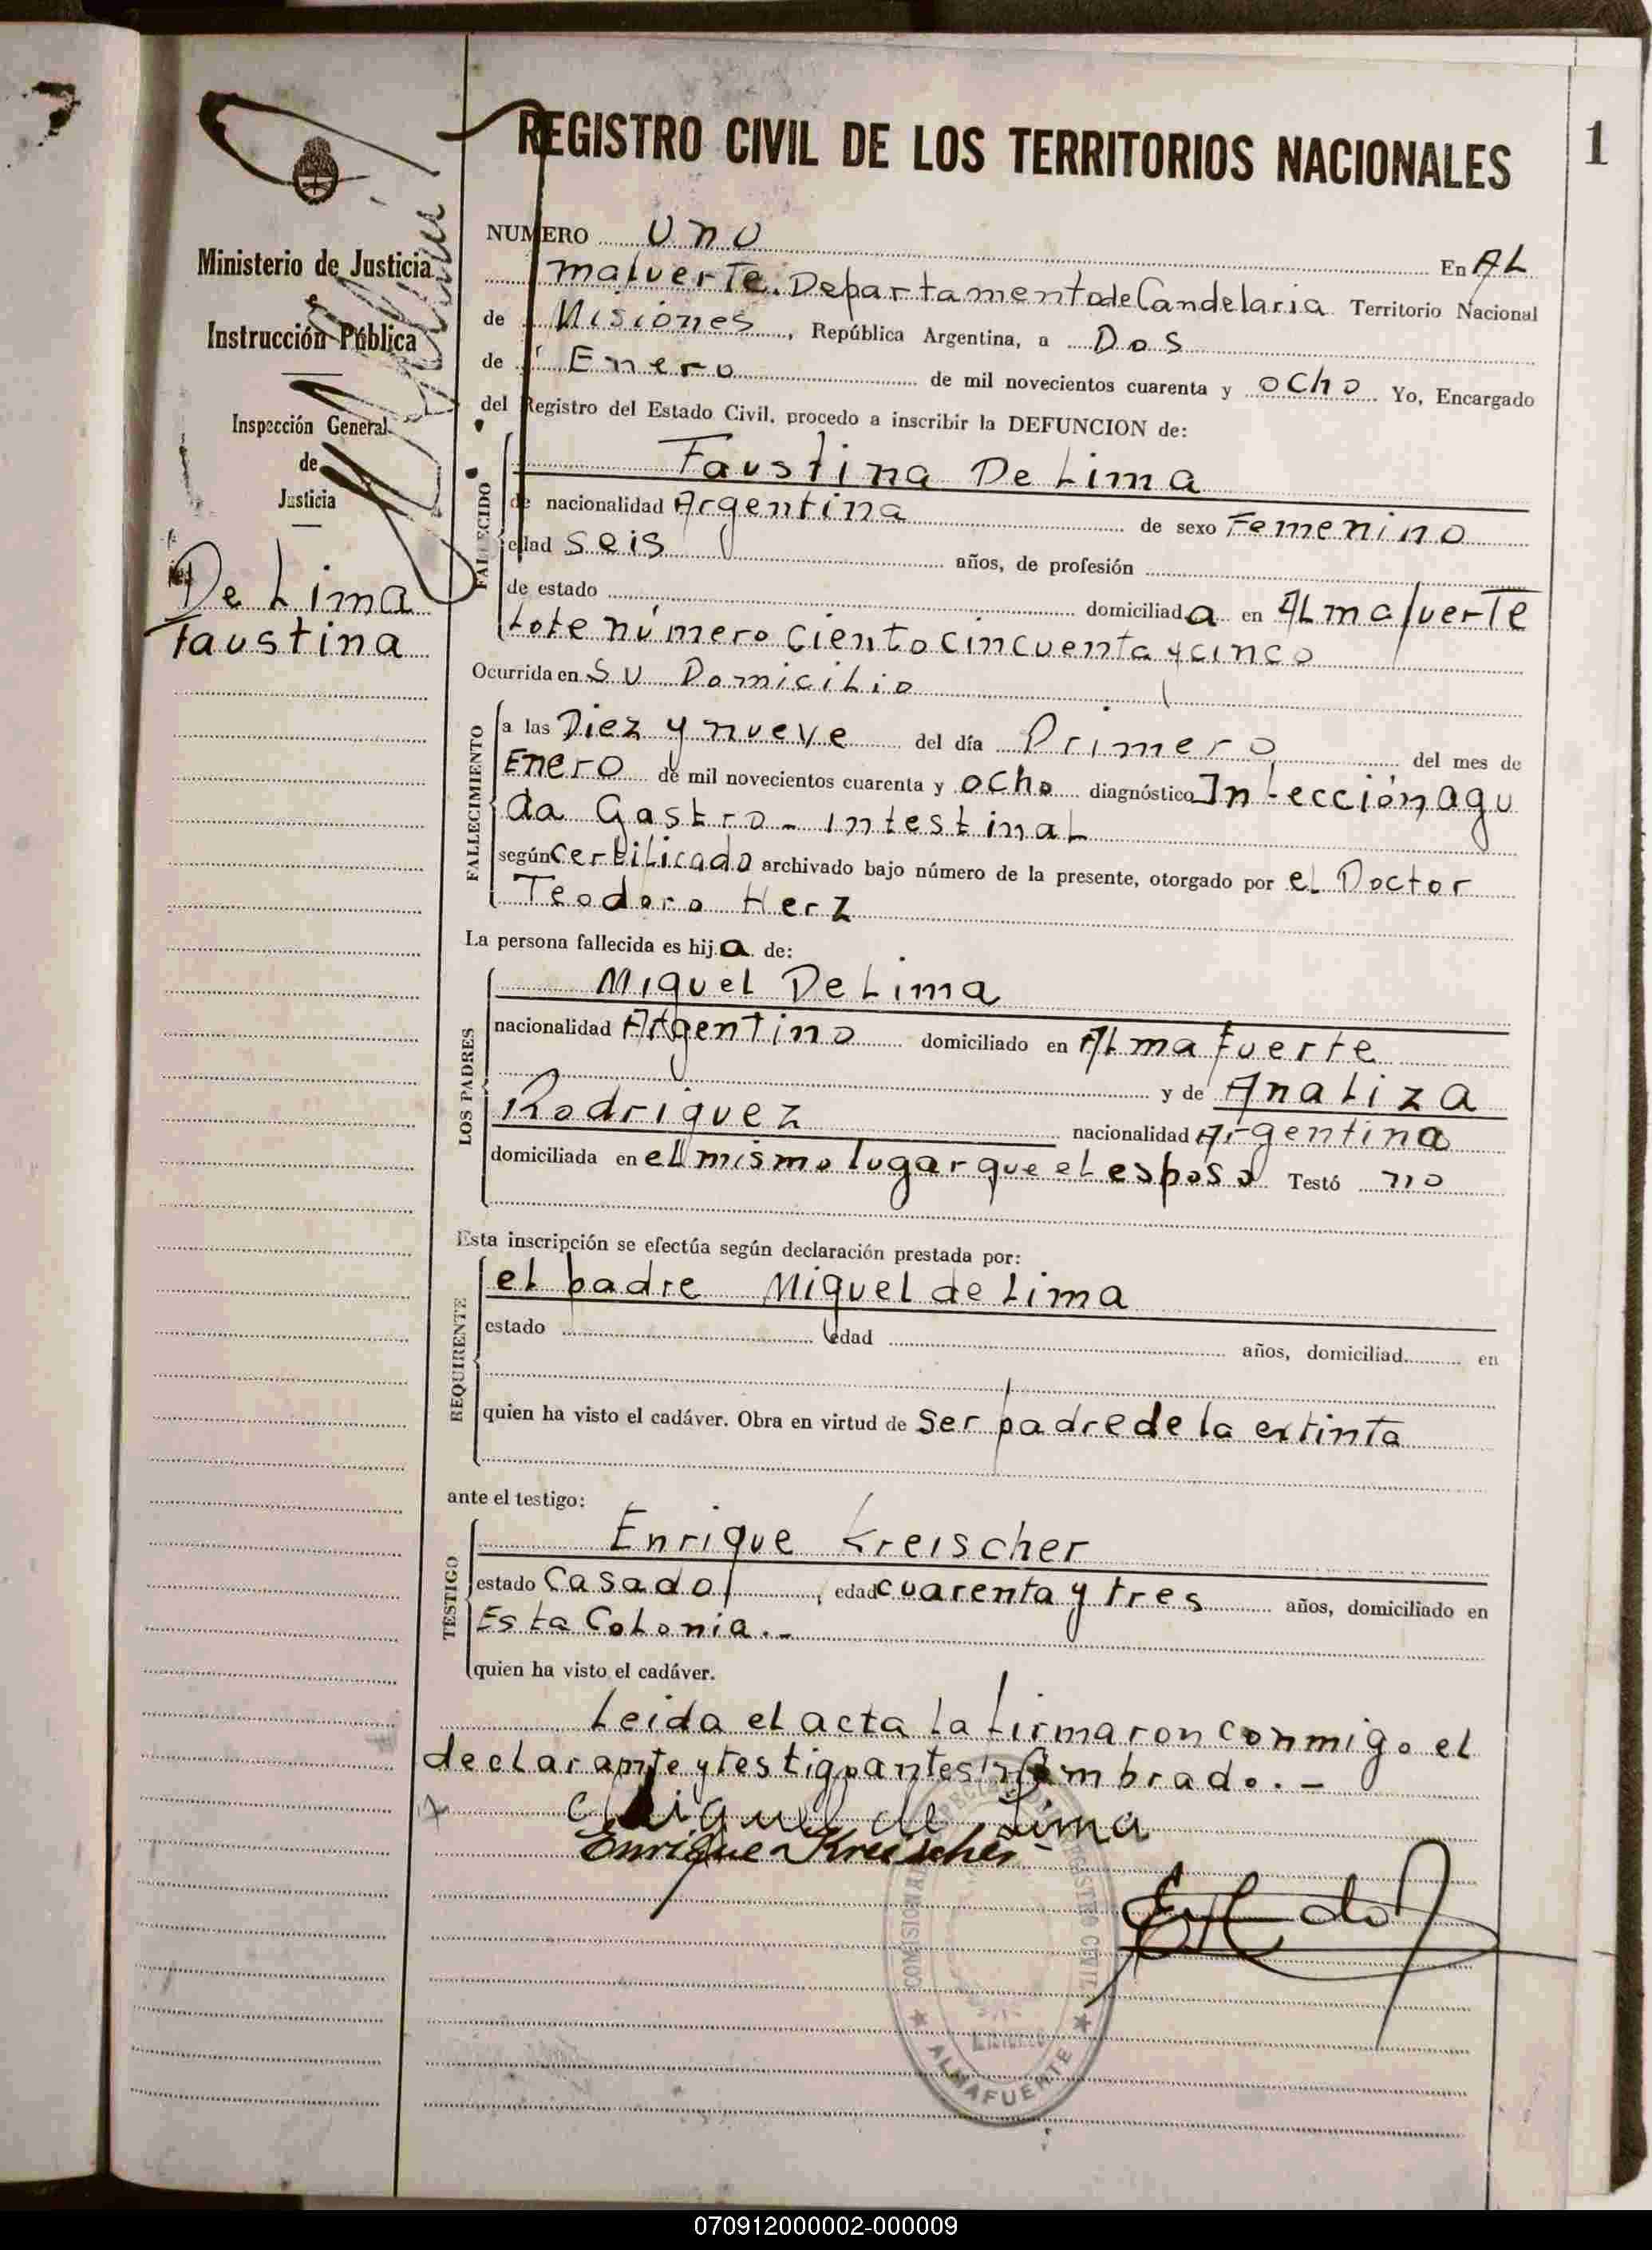 REGISTRO CIVIL DE LOS TERRITORIOS NACIONALES
1
Ministerio de Justicia
e
Instrucción Pública
Inspección General
de
Justicia
De Lima
Faustina
NUMERO Uno En AL
mafuerte. Departamento de Candelaria Territorio Nacional
de Misiones, República Argentina, a Dos
de Enero de mil novecientos cuarenta y ocho Yo, Encargado
del Registro del Estado Civil, procedo a inscribir la DEFUNCION de:
FALLECIDO
Faustina De Lima
de nacionalidad Argentina de sexo Femenino
edad seis años, de profesión
de estado domiciliada en ALmafuerte
Lote número ciento cincuenta y cinco
Ocurrida en su Domicilio
FALLECIMIENTO
a las Diez y nueve del día Primero del mes de
Enero de mil novecientos cuarenta y ocho diagnóstico Infección agu
da Gastro-intestinal
según certificado archivado bajo número de la presente, otorgado por el Doctor
Teodoro Herz
La persona fallecida es hija de:
LOS PADRES
Miguel De Lima
nacionalidad Argentino domiciliado en ALmafuerte
y de Analiza
Rodriguez nacionalidad Argentina
domiciliada en el mismo lugar que el esposo Testó no
Esta inscripción se efectúa según declaración prestada por:
REQUIRENTE
el padre Miguel de Lima
estado edad años, domiciliad en
quien ha visto el cadáver. Obra en virtud de ser padre de la extinta
ante el testigo:
TESTIGO
Enrique Kreischer
estado Casado, edad cuarenta y tres años, domiciliado en
Esta Colonia.-
quien ha visto el cadáver.
Leida el acta la firmaron conmigo el
declarante y testigo antes nombrado.-
Miguel de Lima
Enrique Kreischer
REGISTRO CIVIL
ALMAFUERTE
070912000002-000009